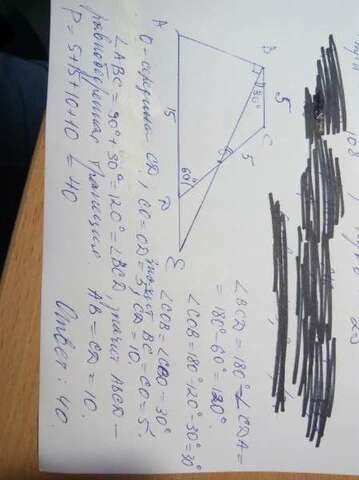 A
B
30°
5
C
15
O
5
60°
D
E
∠BCD = 180° - ∠CDA =
= 180° - 60° = 120°
∠COB = 180° - 120° - 30° = 30°
∠COB = ∠CBO = 30°
O - середина CD, CO = OD = 5, CD = 10.
значит BC = CO = 5.
∠ABC = 90° + 30° = 120° = ∠BCD, значит ABCD -
равнобедренная трапеция. AB = CD = 10.
P = 5 + 15 + 10 + 10 = 40
Ответ: 40.